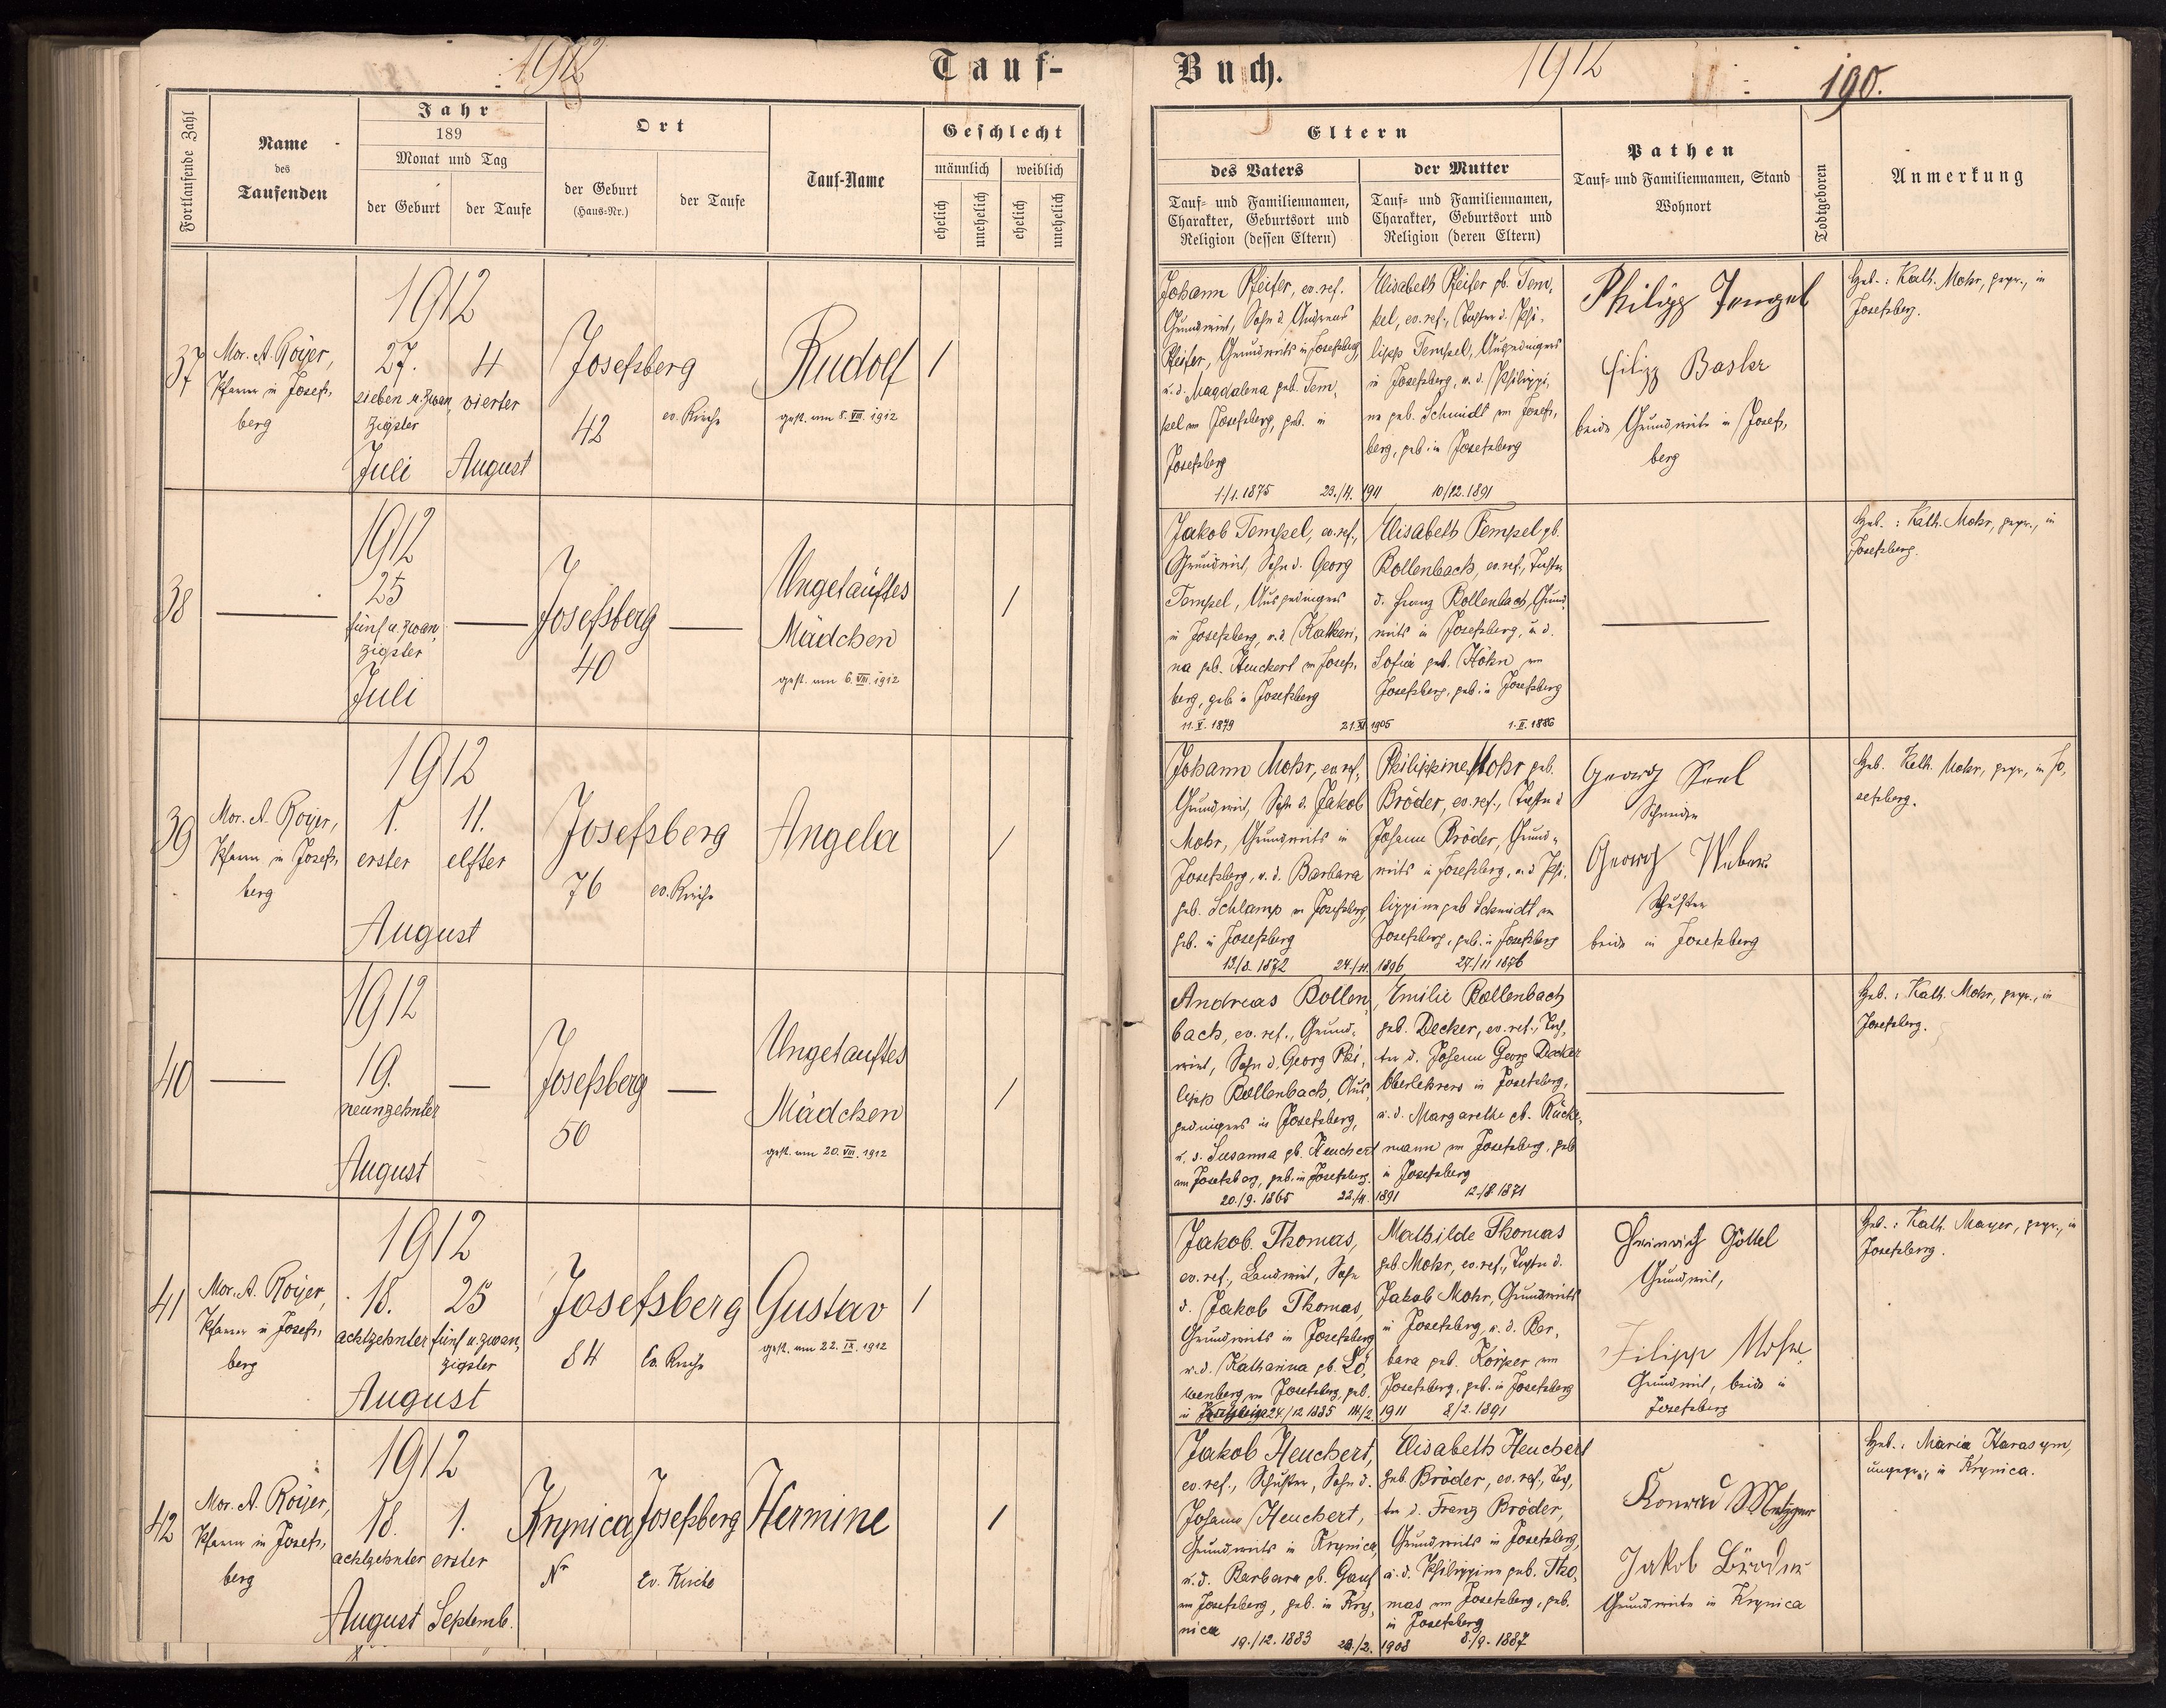 1912
Tauf-
Buch.
1912
190.
Fortlaufende Zahl
Name
des
Taufenden
Jahr
189
Monat und Tag
der Geburt
der Taufe
Ort
der Geburt
(Haus-Nr.)
der Taufe
Tauf-Name
Geschlecht
männlich
weiblich
ehelich
unehelich
ehelich
unehelich
Eltern
des Vaters
Tauf- und Familiennamen,
Charakter, Geburtsort und
Religion (dessen Eltern)
der Mutter
Tauf- und Familiennamen,
Charakter, Geburtsort und
Religion (deren Eltern)
Pathen
Tauf- und Familiennamen, Stand
Wohnort
Todtgeboren
Anmerkung
37
Mor. A. Royer,
Pfarrer in Josefs,
berg
1912
27.
sieben u. zwan,
zigster
Juli
4
vierter
August
Josefsberg
42
ev. Kirche
Rudolf
gest. am 8. VIII. 1912
1
Johann Pfeifer, ev. ref.
Grundwirt, Sohn d. Andreas
Pfeifer, Grundwirts in Josefsberg,
u. d. Magdalena geb. Tem,
pel in Josefsberg, geb. in
Josefsberg
1./1. 1875 23./4. 1911 10/12. 1891
Elisabeth Pfeifer gb. Tem,
pel, ev. ref., Tochter d. Phi,
lipp Tempel, Ausgedingers
in Josefsberg, u. d. Philippi,
ne geb. Schmidt in Josefs,
berg, geb. in Josefsberg
Philipp Tempel
Filipp Basler
beide Grundwirte in Josefs,
berg
Heb.: Kath. Mohr, gepr., in
Josefsberg.
38
1912
25
fünf u. zwan,
zigster
Juli
Josefsberg
40
Ungetauftes
Mädchen
gest. am 6. VIII. 1912
1
Jakob Tempel, ev. ref.,
Grundwirt, Sohn d. Georg
Tempel, Ausgedingers
in Josefsberg, u. d. Kathari,
na geb. Heuchert in Josefs,
berg, geb. in Josefsberg
11. V. 1879 21. XI. 1905 1. II. 1886
Elisabeth Tempel gb.
Bollenbach, ev. ref., Tochter
d. Franz Bollenbach, Grund
wirts in Josefsberg, u. d.
Sofie geb. Höhn in
Josefsberg, geb. in Josefsberg
Heb.: Kath. Mohr, gepr., in
Josefsberg.
39
Mor. A. Royer,
Pfarrer in Josefs,
berg
1912
1.
erster
11.
elfter
August
Josefsberg
76
ev. Kirche
Angela
1
Johann Mohr, ev. ref.,
Grundwirt, Sohn d. Jakob
Mohr, Grundwirts in
Josefsberg, u. d. Barbara
geb. Schlamp in Josefsberg,
geb. in Josefsberg
13./8. 1872 24./11. 1896 27./11 1876
Philippine Mohr geb.
Bröder, ev. ref., Tochter d
Johann Bröder, Grund-
wirts in Josefsberg, u. d. Phi,
lippine geb Schmidt in
Josefsberg, geb. in Josefsberg
Georg Seel
Schneider
Georg Weber
Schuster
beide in Josefsberg
Heb. Kath. Mohr, gepr., in Jo,
sefsberg.
40
1912
19.
neunzehnter
August
Josefsberg
50
Ungetauftes
Mädchen
gest. am 20. VIII. 1912
1
Andreas Bollen,
bach, ev. ref., Grund-
wirt, Sohn d. Georg Phi,
lipp Bollenbach, Aus,
gedingers in Josefsberg,
u. d. Susanna gb. Heuchert
in Josefsberg, geb. in Josefsberg.
20./9. 1865 22./11. 1891 12./8. 1871
Emilie Bollenbach
geb. Decker, ev. ref., Toch,
ter d. Johann Georg Decker
Oberlehrers in Josefsberg,
u. d. Margarethe gb. Rücke,
mann in Josefsberg, geb
in Josefsberg
Heb.: Kath. Mohr, gepr., in
Josefsberg.
41
Mor. A. Royer,
Pfarrer in Josefs,
berg
1912
18.
achtzehnter
25
fünf u. zwan,
zigster
August
Josefsberg
84
Ev. Kirche
Gustav
gest. am 22. IX. 1912
1
Jakob Thomas,
ev. ref., Landwirt, Sohn
d. Jakob Thomas,
Grundwirts in Josefsberg
u. d. Katharina gb. Lö,
wenberg in Josefsberg, geb.
in Josefsberg 24./12 1885 14./2. 1911 8/2. 1891
Mathilde Thomas
geb. Mohr, ev. ref., Tochter d.
Jakob Mohr, Grundwirts
in Josefsberg, u. d. Bar,
bara geb. Körper in
Josefsberg, geb. in Josefsberg
Heinrich Göttel
Grundwirt,
Filipp Mohr
Grundwirt, beide in
Josefsberg
Heb.: Kath. Mayer, gepr., in
Josefsberg.
42
Mor. A. Royer,
Pfarrer in Josefs,
berg
1912
18.
achtzehnter
August
1.
erster
Septemb.
Krynica
Nr
Josefsberg
Ev. Kirche
Hermine
1
Jakob Heuchert,
ev. ref., Schuster, Sohn d.
Johann Heuchert,
Grundwirts in Krynica,
u. d. Barbara gb. Gauf
in Josefsberg, geb. in Kry,
nica
19./12. 1883 29./2. 1908 8./9. 1887
Elisabeth Heuchert
geb. Bröder, ev. ref., Toch,
ter d. Franz Bröder,
Grundwirts in Josefsberg,
u. d. Philippine geb. Tho,
mas in Josefsberg, geb.
in Josefsberg
Konrad Metzger
Jakob Bröder
Grundwirte in Krynica
Heb.: Maria Harasym,
ungepr., in Krynica.